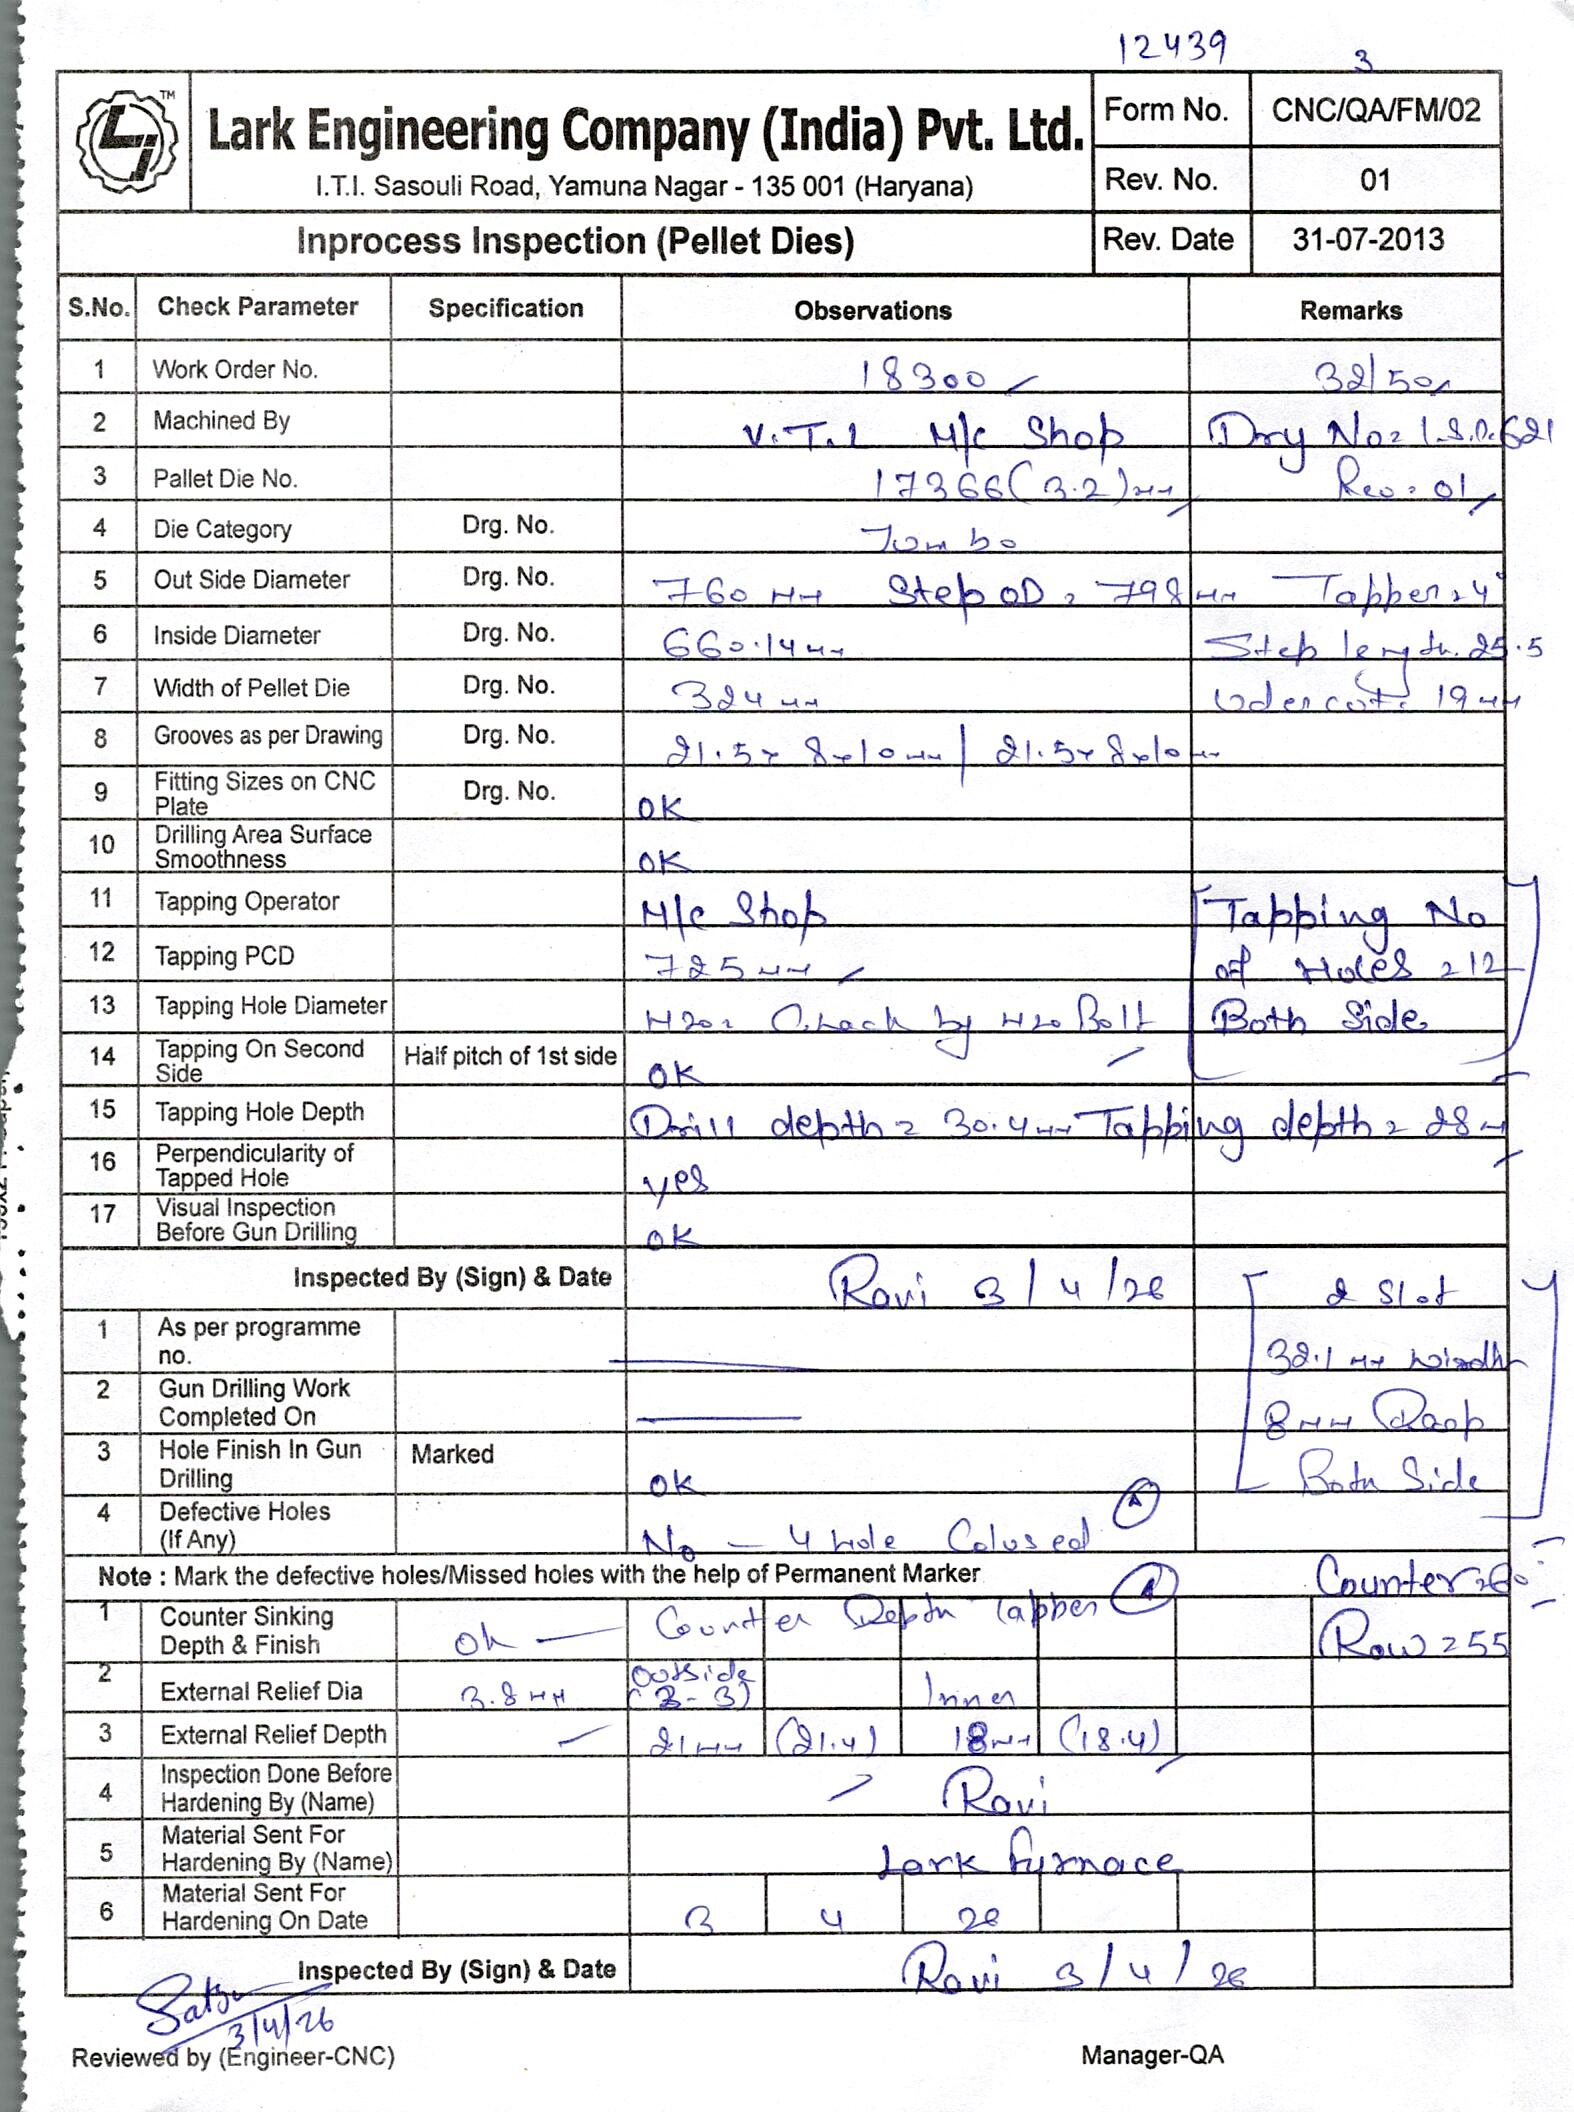 12439
3
TM
Lark Engineering Company (India) Pvt. Ltd.
I.T.I. Sasouli Road, Yamuna Nagar - 135 001 (Haryana)
Form No. CNC/QA/FM/02
Rev. No. 01
Inprocess Inspection (Pellet Dies) Rev. Date 31-07-2013
S.No. Check Parameter Specification Observations Remarks
1 Work Order No. 18300 32/50
2 Machined By V.T.L M/c Shop Dry No= I.S.D.621
3 Pallet Die No. 17366(3.2)mm Rev. 01
4 Die Category Drg. No. Jumbo
5 Out Side Diameter Drg. No. 760 mm Step OD = 798 mm Tapper = 4°
6 Inside Diameter Drg. No. 660.14 mm Step length. 25.5
7 Width of Pellet Die Drg. No. 324 mm Udercut. 19 mm
8 Grooves as per Drawing Drg. No. 21.5x8x10mm / 21.5x8x10mm
9 Fitting Sizes on CNC Plate Drg. No. OK
10 Drilling Area Surface Smoothness OK
11 Tapping Operator M/c Shop Tapping No
12 Tapping PCD 725 mm of Holes = 12
13 Tapping Hole Diameter M20= Check by M20 Bolt Both Side
14 Tapping On Second Side Half pitch of 1st side OK
15 Tapping Hole Depth Drill depth = 30.4mm Tapping depth = 28 m
16 Perpendicularity of Tapped Hole yes
17 Visual Inspection Before Gun Drilling OK
Inspected By (Sign) & Date Ravi 3/4/26 2 Slot
1 As per programme no. 32.1 mm
2 Gun Drilling Work Completed On 8mm Deep
3 Hole Finish In Gun Drilling Marked OK Both Side
4 Defective Holes (If Any) No - 4 hole Colused A
Note : Mark the defective holes/Missed holes with the help of Permanent Marker Counter = 60
1 Counter Sinking Depth & Finish Ok Counter Depth Tapper A Row = 55
2 External Relief Dia 3.8 mm Outside (3-3) Inner
3 External Relief Depth 21mm (21.4) 18mm (18.4)
4 Inspection Done Before Hardening By (Name) Ravi
5 Material Sent For Hardening By (Name) Lark furnace
6 Material Sent For Hardening On Date 3 4 26
Inspected By (Sign) & Date Ravi 3/4/26
3/4/26
Reviewed by (Engineer-CNC) Manager-QA